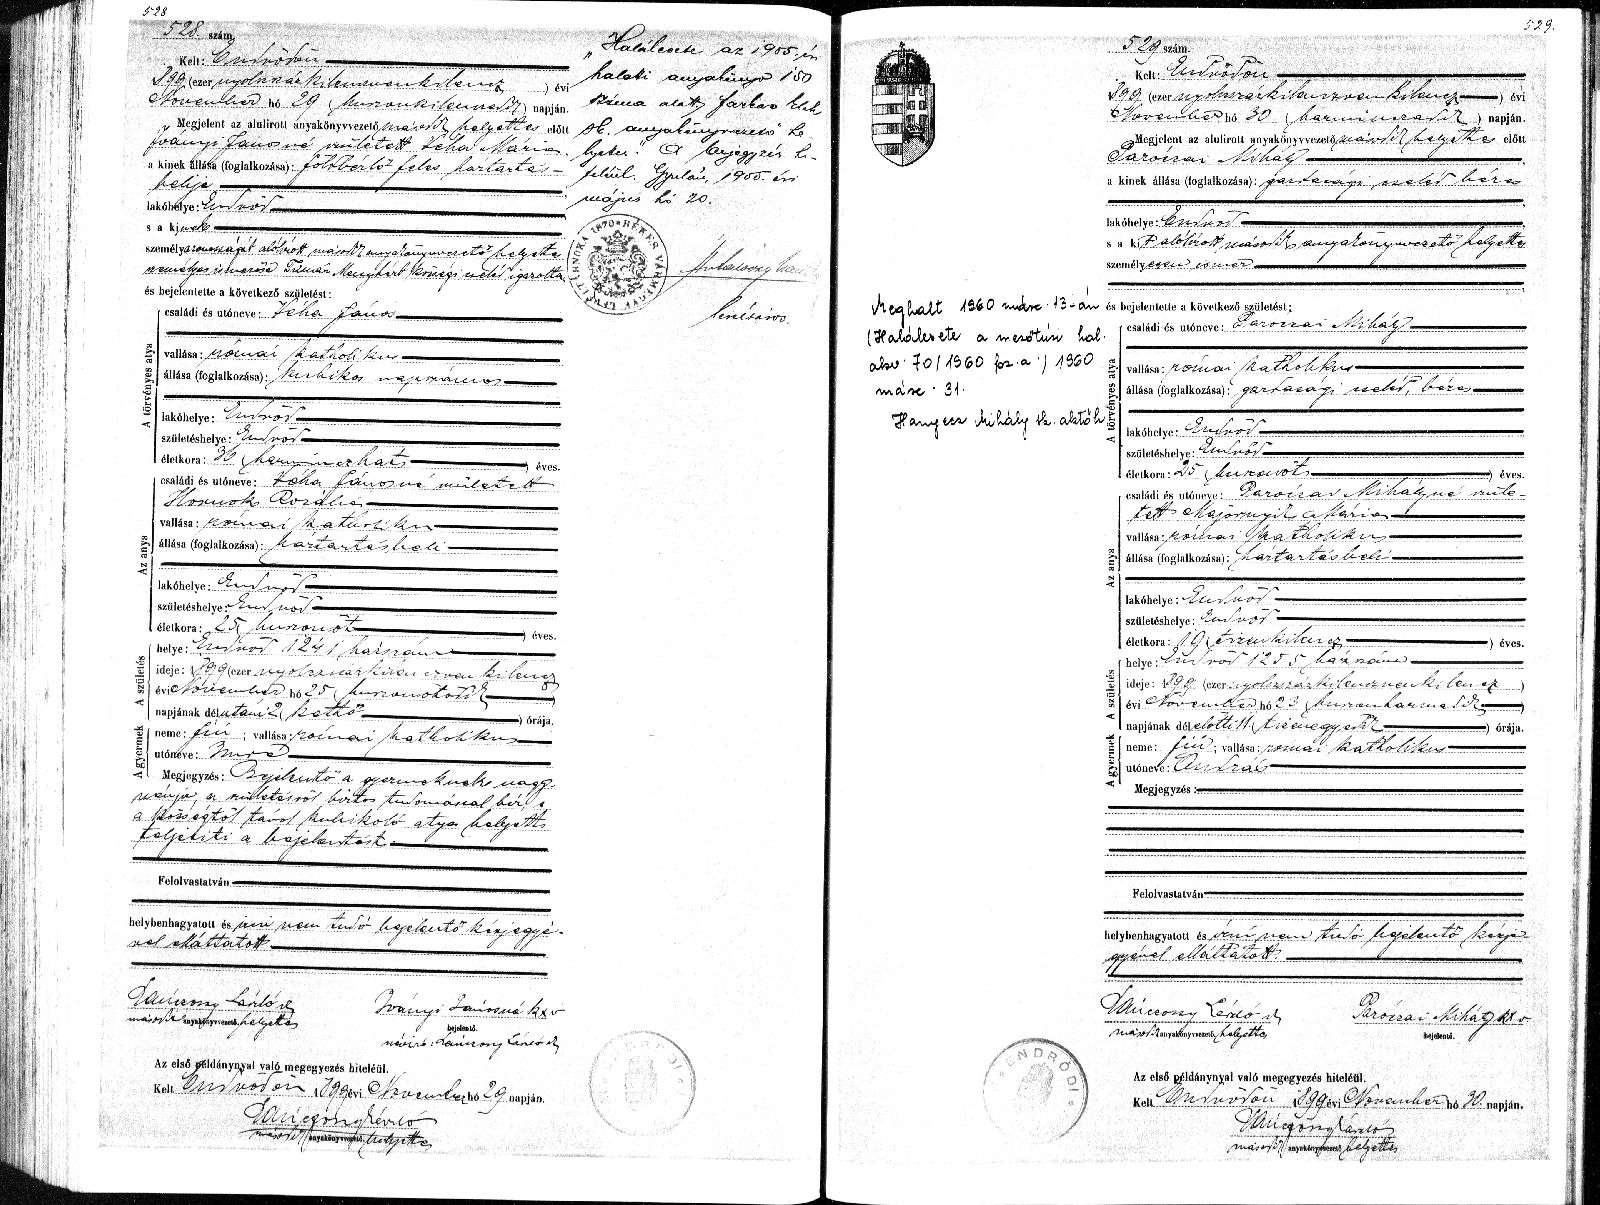 528
528. szám.
Kelt: Endrődön
899 (ezer nyolczszázkilenczvenkilencz) évi
November hó 29 (huszonkilenczedik) napján.
Megjelent az alulirott anyakönyvvezető másodk helyettes előtt
Iványi Jánosné született Icha Mária
a kinek állása (foglalkozása): feles háztartás-
belije
lakóhelye: Endrőd
s a kinek
személyazonosságát alólirott másodk anyakönyvvezető helyettes
személyes ismerőse Timár Menyhért községi cseléd igazolta
és bejelentette a következő születést:
A törvényes atya
családi és utóneve: Icha János
vallása: római katholikus
állása (foglalkozása): kubikos napszámos
lakóhelye: Endrőd
születéshelye: Endrőd
életkora: 36 (harminczhat) éves.
Az anya
családi és utóneve: Icha Jánosné született
Hornok Rozália
vallása: római katholikus
állása (foglalkozása): háztartásbeli
lakóhelye: Endrőd
születéshelye: Endrőd
életkora: 25 (huszonöt) éves.
A születés
helye: Endrőd 1241 házszám
ideje: 1899 (ezer nyolczszázkilenczvenkilencz)
évi November hó 25 (huszonötödik)
napjának délutáni 2 (kettő) órája.
A gyermek
neme: fiú; vallása: római katholikus
utóneve: Imre
Megjegyzés: Bejelentő a gyermeknek nagy-
nénja, a születésről biztos tudomással bir s
a községtől távol kubikoló atya helyett
teljesiti a bejelentést.
Felolvastatván
helybenhagyatott és irni nem tudó bejelentő kézjegyé-
vel elláttatott
Lániczony László
másodk anyakönyvvezető helyettes
Iványi Jánosné k x v
bejelentő.
névíró: Lániczony László
Az első példánynyal való megegyezés hiteléül.
Kelt Endrődön 1899 évi November hó 29 napján.
Lániczony László
másodk anyakönyvvezető helyettes
"Halálesete az 1955. évi
halotti anyakönyv 150
száma alatt Farkas
sk. anyakönyvvezető he-
lyettes." A bejegyzés hi-
teléül. Gyula, 1955. évi
május hó 20.
BÉKÉS VÁRMEGYE LEVÉLTÁRNOKA 1870
levéltáros.
529.
529 szám.
Kelt: Endrődön
899 (ezer nyolczszázkilenczvenkilencz) évi
November hó 30 (harminczadik) napján.
Megjelent az alulirott anyakönyvvezető másodk helyettes előtt
Paróczai Mihály
a kinek állása (foglalkozása): gazdasági cseléd béres
lakóhelye: Endrőd
s a kit alólirott másodk anyakönyvvezető helyettes
személyesen ismer
Meghalt 1960 márc. 13-án
(Halálesete a mezőtúri hal.
akv. 70/1960 fsz. a.) 1960
márc. 31.
Hanyecz Mihály sk. aktőh
és bejelentette a következő születést;
A törvényes atya
családi és utóneve: Paróczai Mihály
vallása: római katholikus
állása (foglalkozása): gazdasági cseléd, béres
lakóhelye: Endrőd
születéshelye: Endrőd
életkora: 25 (huszonöt) éves.
Az anya
családi és utóneve: Paróczai Mihályné szüle-
tett Majórnyik Mária
vallása: római katholikus
állása (foglalkozása): háztartásbeli
lakóhelye: Endrőd
születéshelye: Endrőd
életkora: 19 (tizenkilencz) éves.
A születés
helye: Endrőd 1255 házszám
ideje: 1899 (ezer nyolczszázkilenczvenkilencz)
évi November hó 23 (huszonharmadik)
napjának délelőtti 11 (tizenegyedik) órája.
A gyermek
neme: fiú; vallása: római katholikus
utóneve: András
Megjegyzés:
Felolvastatván
helybenhagyatott és irni nem tudó bejelentő kézje-
gyével elláttatott.
Lániczony László
másodk anyakönyvvezető helyettes
Paróczai Mihály k x v
bejelentő.
ENDRŐDI
Az első példánynyal való megegyezés hiteléül.
Kelt Endrődön 1899 évi November hó 30. napján.
Lániczony László
másodk anyakönyvvezető helyettes